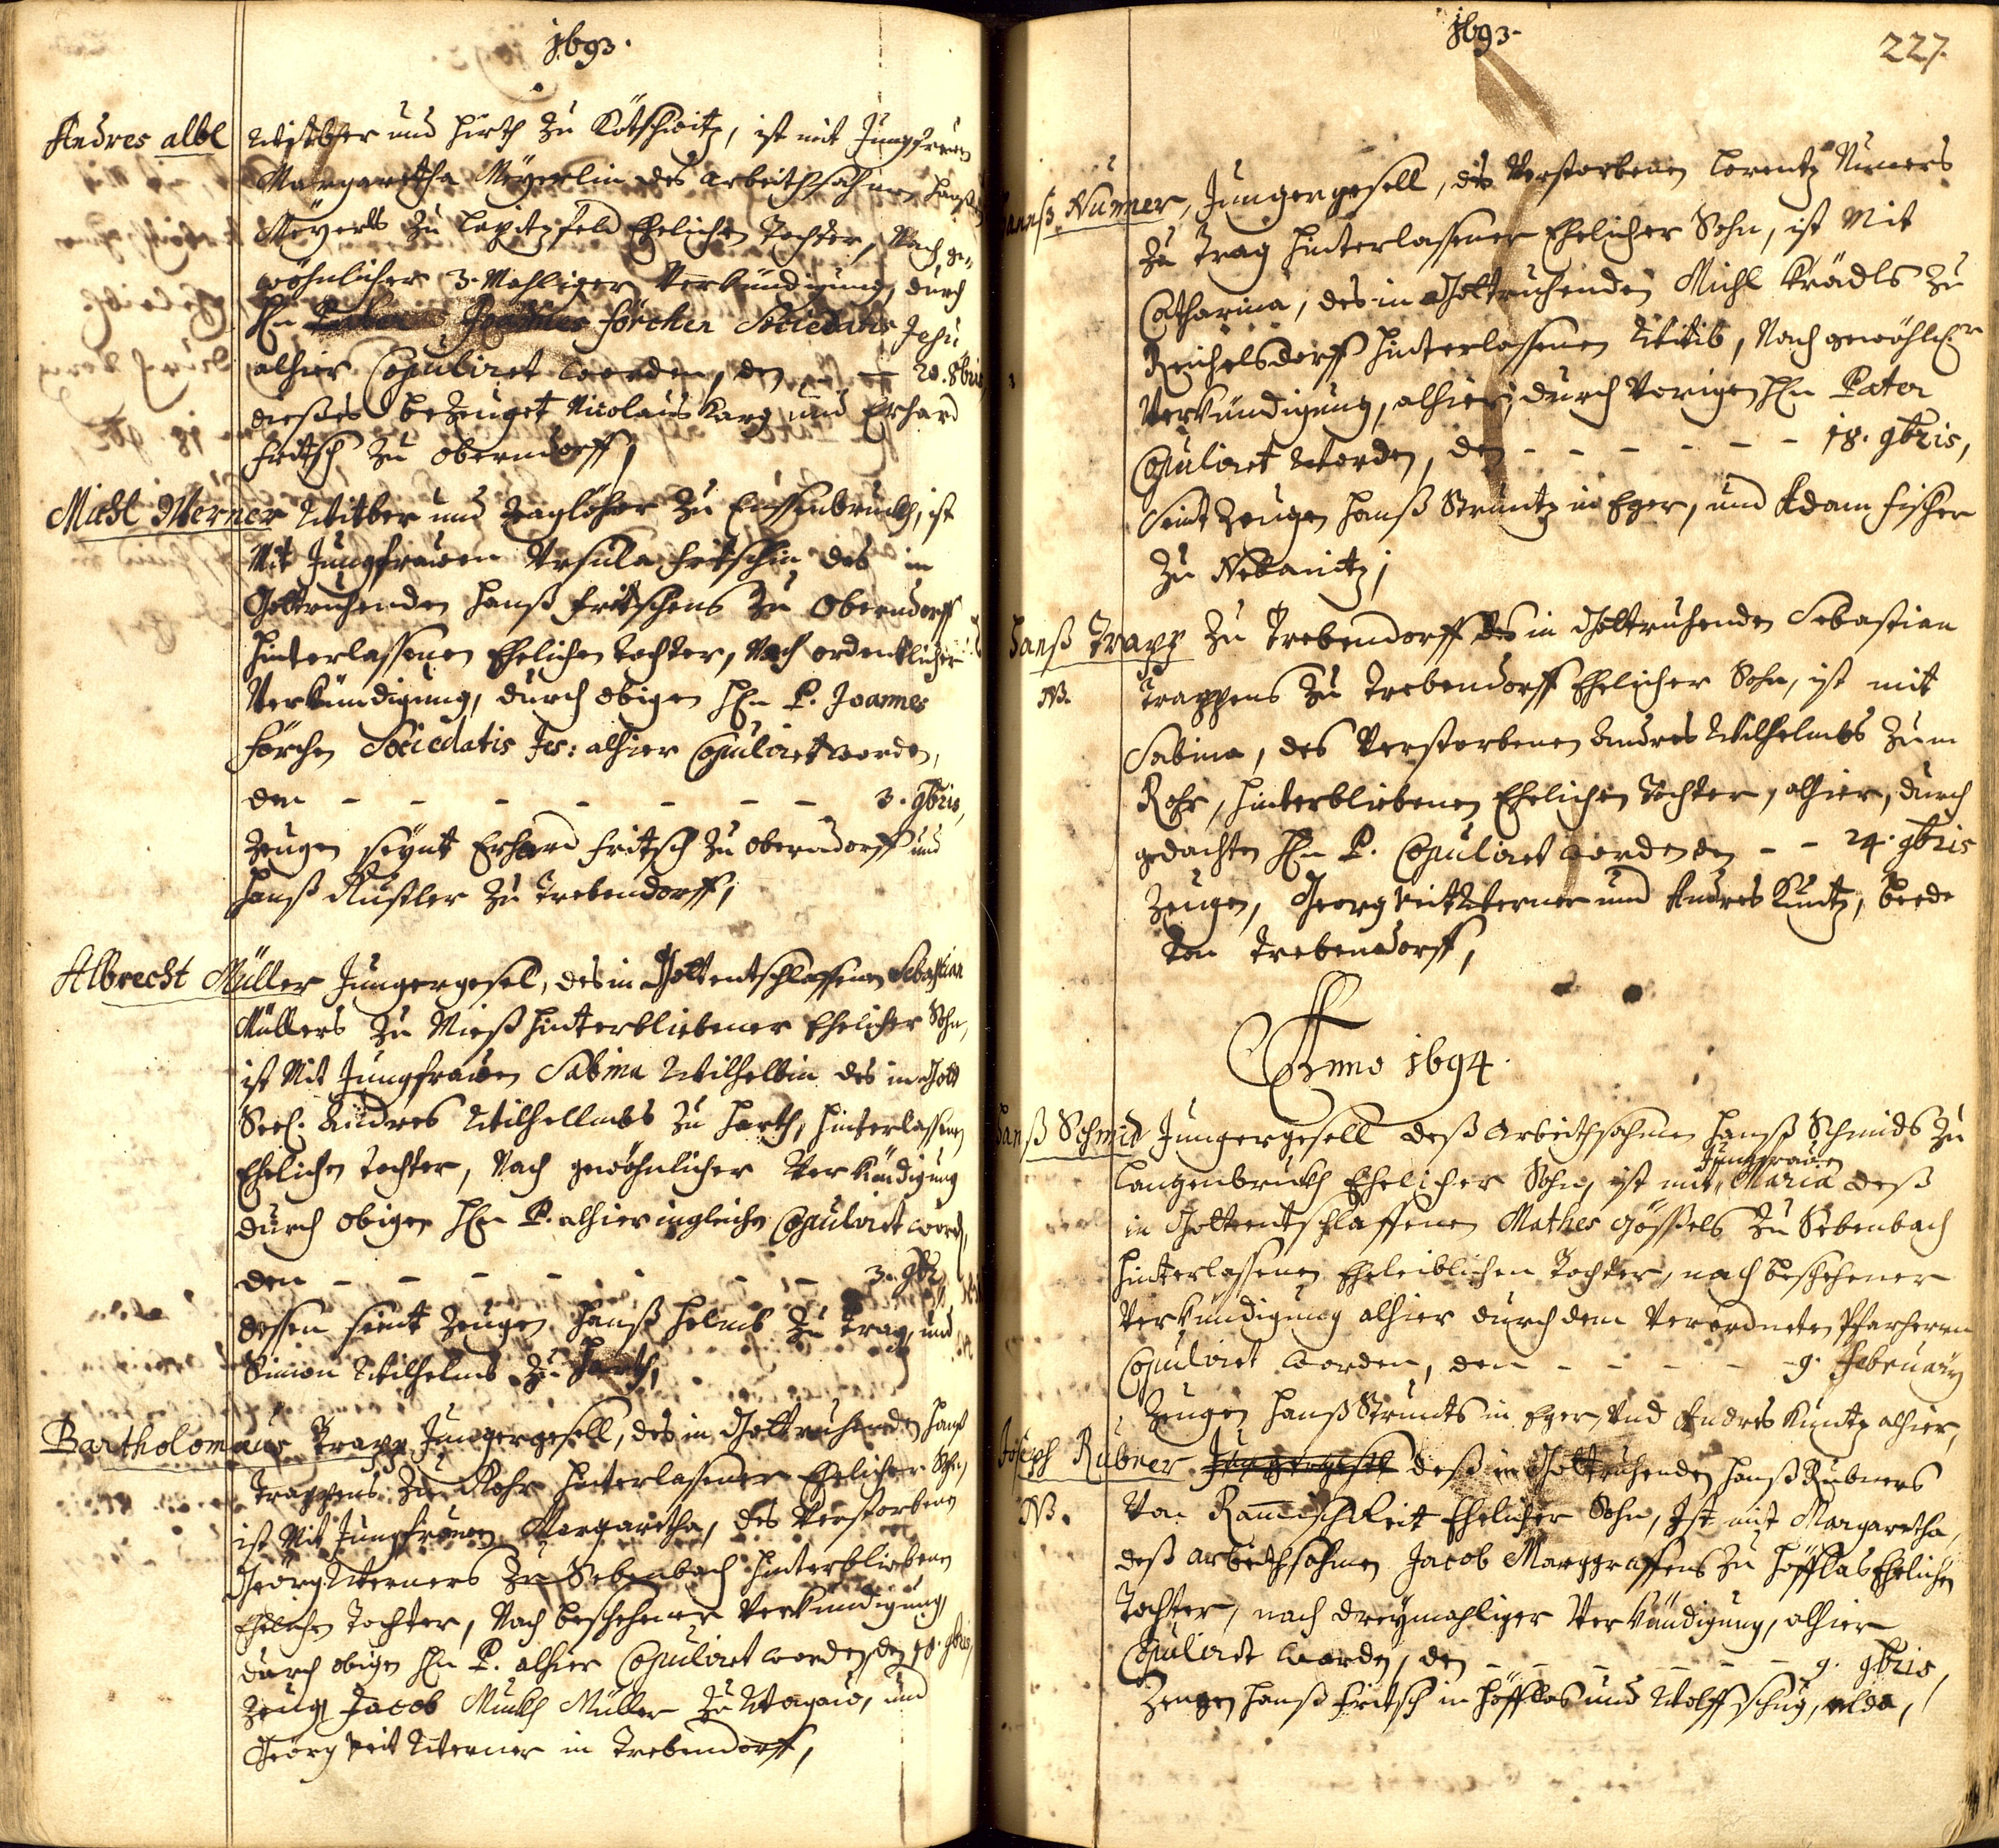 1693.
Andres Albl Wittber und Hirth zu Kötschwitz, ist mit Jungfrauen
Margaretha Meyerlin des arbeithsahmen Hanß
Meyerls zu Lapitzfeld Ehelichen Tochter, Nach ge-
wöhnlicher 3. Mahliger Verkündigung, durch
Hn Pater Joannes Förcher Societatis Jesu
alhier Copuliret worden, den — 20. 8bris,
dießes bezeuget Nicolaus Karg und Erhard
Fritsch zu Oberndorff,
Michl Werner Wittber und Taglöhner zu , ist
Mit Jungfrauen Ursula Fritschin des in
Gottruhenden Hanß Fritschens zu Oberndorff
hinterlassenen Ehelichen Tochter, Nach ordentlicher
Verkündigung, durch obigen Hn P. Joannes
Förcher Societatis Jes: alhier Copuliret worden,
den - - - - - - - 3. 9bris,
Zeugen seynt Erhard Fritsch zu Oberndorff und
Hanß Rustler zu Trebendorff,
Albrecht Müller Jungergesel, des in Gott entschlaffenen Sebastian
Müllers zu Mieß hinterbliebener Ehelicher Sohn,
ist Mit Jungfrauen Sabina Wilhelbin des in Gott
Seel. Andres Wilhellmbs zu Harth, hinterlassenen
Ehelichen Tochter, Nach gewöhnlicher Verkündigung
durch obigen Hn P. alhier ingleichen Copuliret worden,
den - - - - - - - 3. 9br
dessen seint Zeugen Hanß Helmb zu Trag, und
Simon Wilhelmb zu Harth,
Bartholomäus Trapp Jungergesell, des in Gottruhenden Hanß
Trappens zu Rohr hinterlassener Ehelicher Sohn,
ist Mit Jungfrauen Margaretha, des Verstorbenen
Georg Werners zu Sebenbach hinterbliebenen
Ehelichen Tochter, Nach beschehener Verkündigung,
durch obigen Hn P. alhier Copuliret worden, den 18. 9bris,
Zeugen Jacob Munkh Müller zu Wogau, und
Georg Veit Werner in Trebendorff,
1693.
227.
Hannß Nürner, Jungergesell, des Verstorbenen Lorentz Nürners
zu Trag hinterlassener Ehelicher Sohn, ist Mit
Catharina, des in Gottruhenden Michl Krädls zu
Reichelsdorff hinterlassenen Wittib, Nach gewöhlicher
Verkündigung, alhier, durch Vorigen Hn Pater
Copuliret worden, den - - - - - - 18. 9bris,
Seint Zeugen Hanß Strüntz in Eger, und Adam Fischer
zu Nebanitz,
Hanß Trapp zu Trebendorff des in Gottruhenden Sebastian
NB. Trappens zu Trebendorff Ehelicher Sohn, ist mit
Sabina, des Verstorbenen Andres Wilhelmbs zum
Rohr, hinterbliebenen Ehelichen Tochter, alhier, durch
gedachten Hn P. Copuliret worden den - - 24. 9bris
Zeugen, Georg Veit Werner und Andres Küntz, beede
von Trebendorff,
Anno 1694.
Hanß Schmid Jungergesell deß arbeithsahmen Hanß Schmids zu
Langenbrukh Ehelicher Sohn, ist mit Jungfrauen Maria deß
in Gottentschlaffenen Mathes Gößels zu Sebenbach
hinterlassenen Eheleiblichen Tochter, nach beschehener
Verkündigung alhier durch dem Verordneten Pfarherrn
Copuliret worden, den - - - - - 9. February
Zeugen Hanß Strunts in Eger, und Andres Küntz alhier,
Joseph Rubner Jungergesel deß in Gottruhenden Hanß Rubners
NB. Von Ehelicher Sohn, Ist mit Margaretha,
deß arbeithsahmen Jacob Marggraffens zu Höfflas Ehelichen
Tochter, nach dreymahliger Verkündigung, alhier
Copuliret worden, den - - - - - - 9. 9bris,
Zeugen Hanß Fritsch in Höfflas und Wolff Schug, alda,